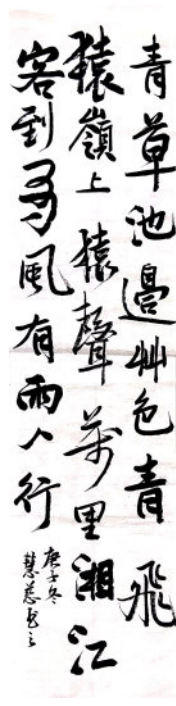 青草池邊艸色青飛
猿嶺上猿聲萬里湘江
客到有風有雨人行
庚子冬
慧慈书之